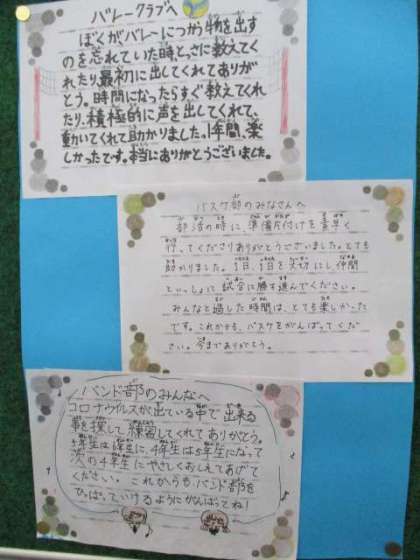 バレークラブへ
ぼくが、バレーにつかう物を出す
のを忘れていた時、とっさに教えてく
れたり、最初に出してくれてありが
とう。時間になったらすぐ教えてくれ
たり、積極的に声を出してくれて、
動いてくれて助かりました。1年間、楽
しかったです。本当にありがとうございました。
バスケ部のみなさんへ
部活の時に準備片付けを素早く
行ってくださりありがとうございました。とても
助かりました。1日、1日を大切にし、仲間
といっしょに試合に勝ち進んでください。
みんなと過した時間は、とても楽しかった
です。これからも、バスケをがんばってくだ
さい。今までありがとう。
バンド部のみんなへ
コロナウイルスが出ている中で出来る
事を探して練習してくれてありがとう。
5年生は6年生に、4年生は5年生になって
次の4年生にやさしくおしえてあげて
ください。これからもバンド部を
ひっぱっていけるようにがんばってね!